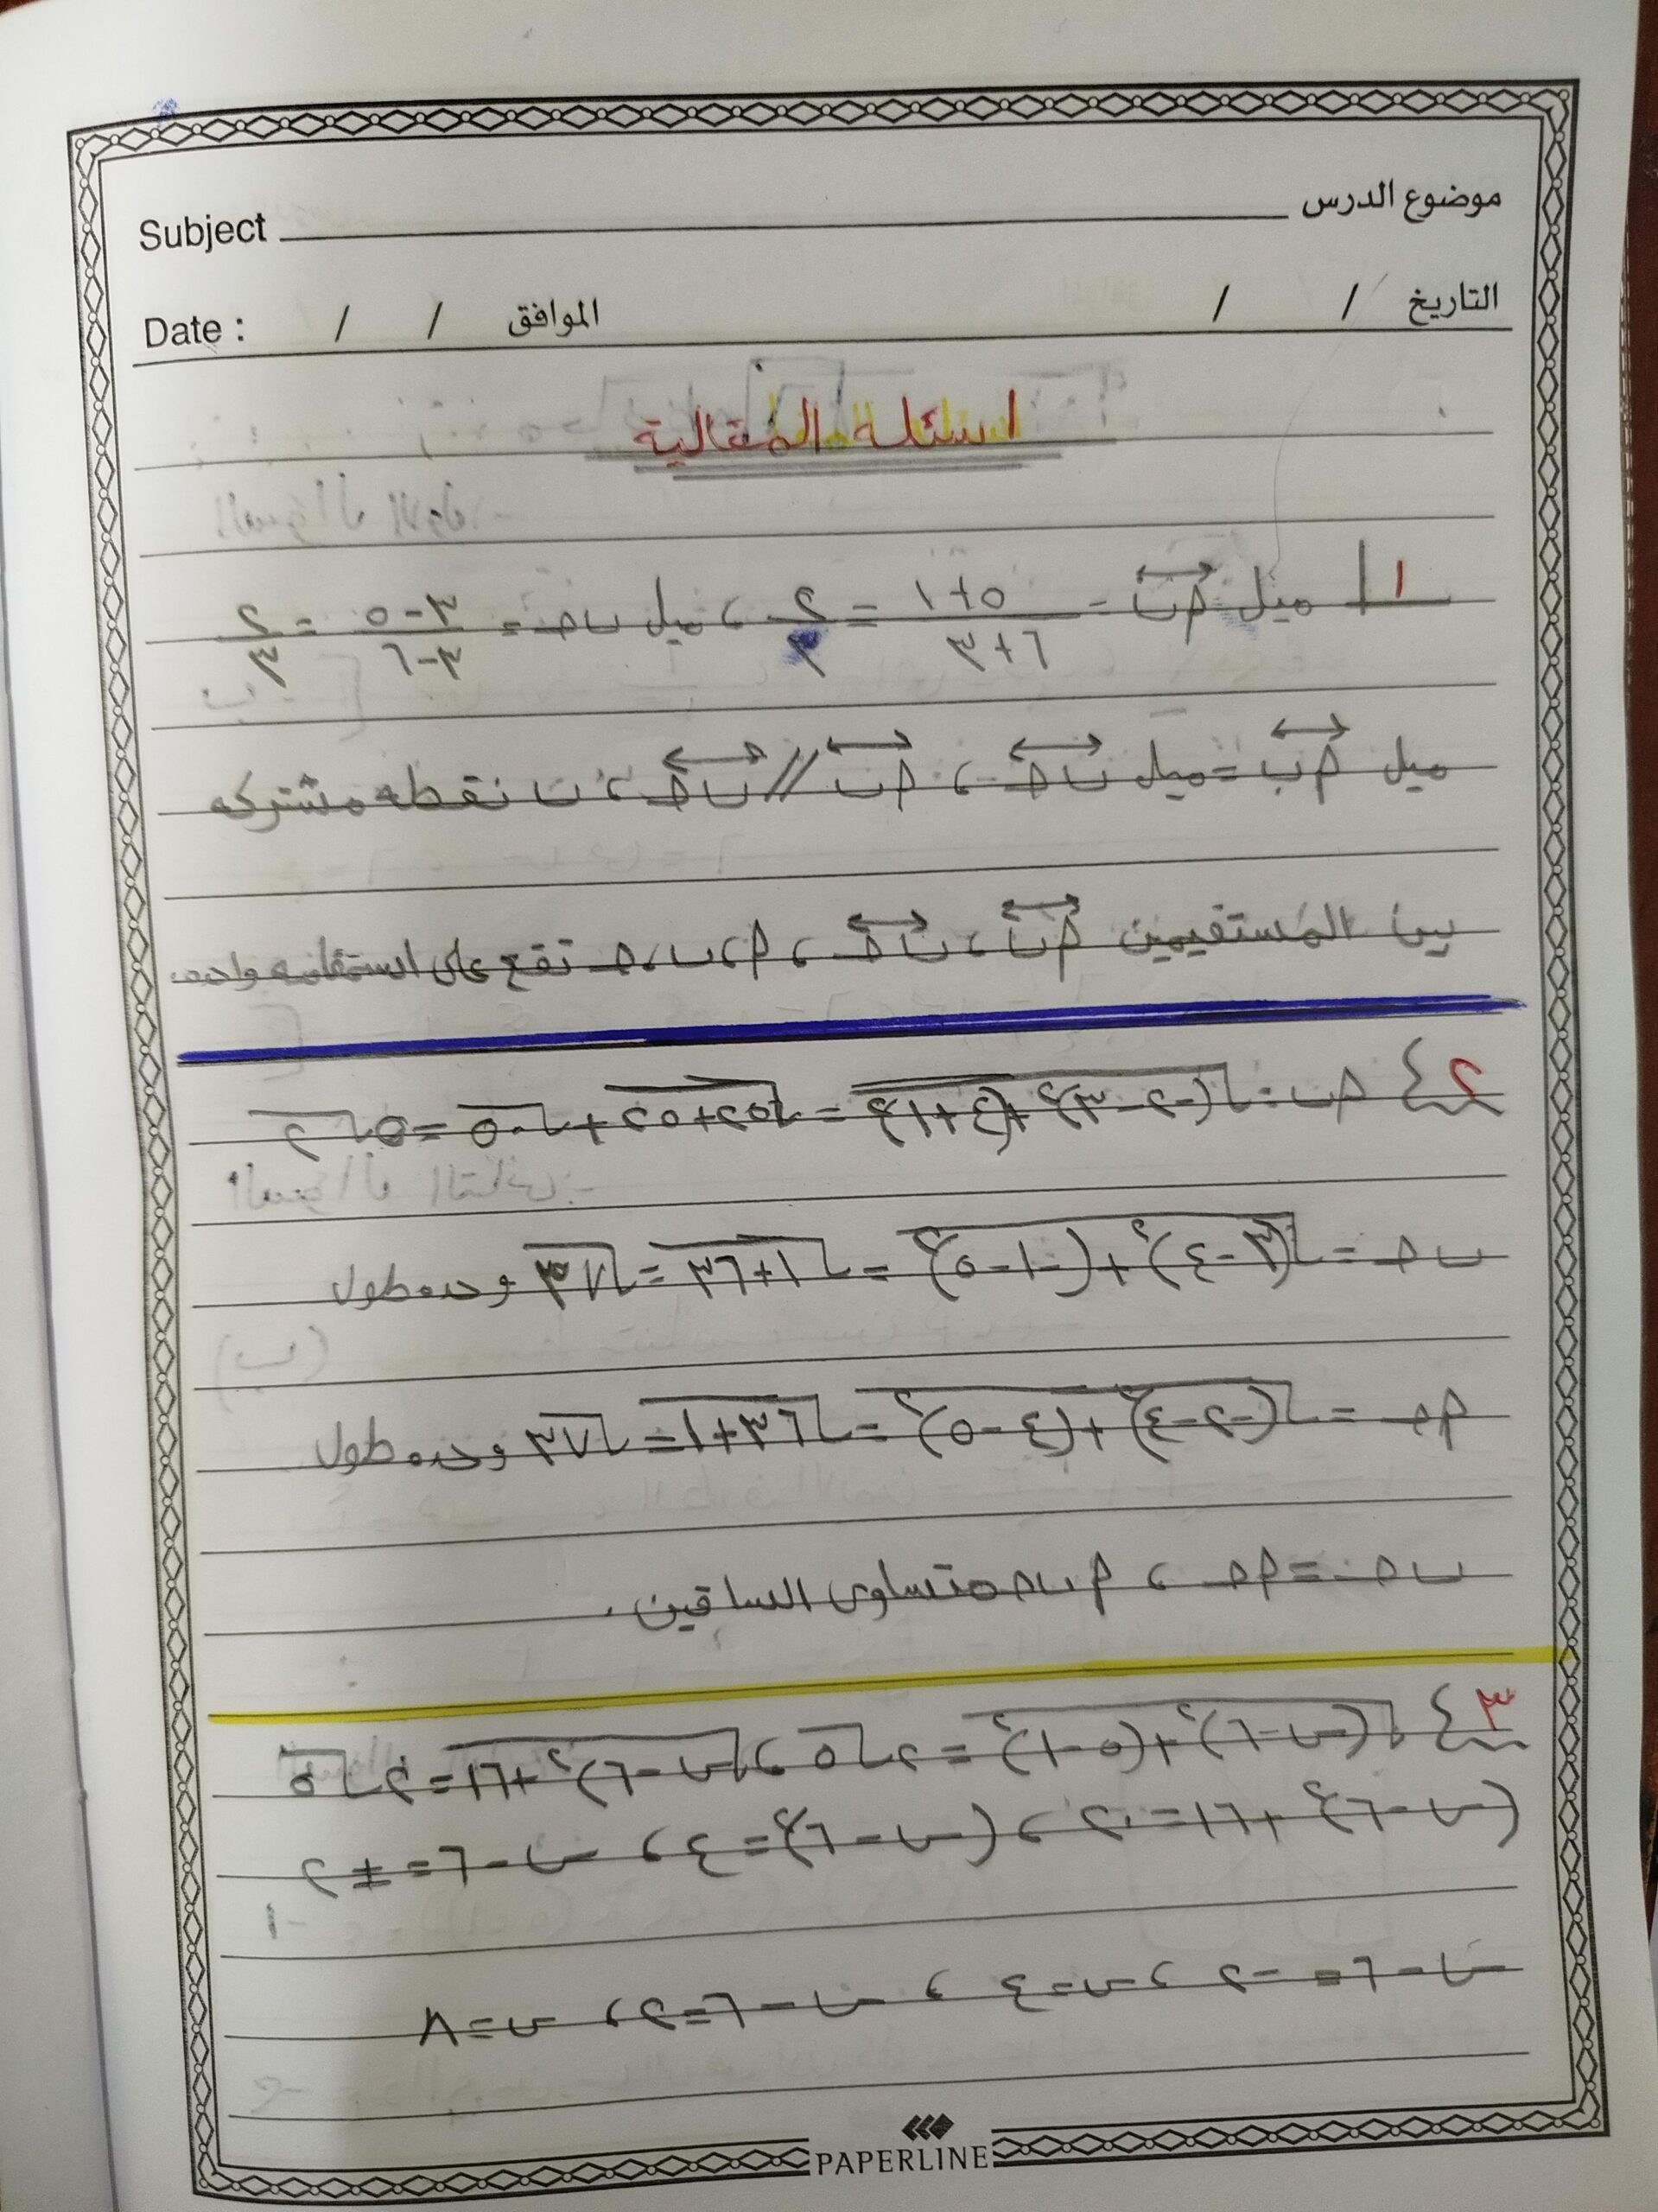 موضوع الدرس Subject
التاريخ / / الموافق / / Date :
اسئله المقالية
١ ميل م ب = (٥+١)/(٦+٣) = ٢/٣ ، ميل ب ح = (٣-٥)/(٣-٦) = ٢/٣
ميل م ب = ميل ب ح ، م ب // ب ح ، ب نقطه مشتركه
بين المستقيمين م ب ، ب ح ، م ، ب ، ح تقع على استقامه واحده
٢ م ب = √(-٢-٣)²+(٤+١)² = √٢٥+٢٥ + √٥٠ = ٥√٢
ب ح = √(٣-٤)²+(-١-٥)² = √١+٣٦ = √٣٧ وحده طول
م ح = √(-٢-٤)²+(٤-٥)² = √٣٦+١ = √٣٧ وحده طول
ب ح = م ح ، م ب ح متساوى الساقين .
٣ √(س-٦)²+(٥-١)² = ٢√٥ ، √(س-٦)²+١٦ = ٢√٥
(س-٦)²+١٦ = ٢٠ ، (س-٦)² = ٤ ، س-٦ = ±٢
س-٦ = -٢ ، س=٤ ، س-٦=٢ ، س=٨
PAPERLINE